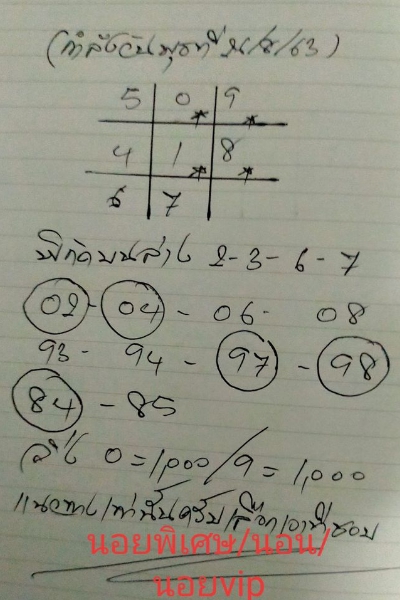 (กำลังวันพุธที่ /63)
5 0 9
4 1 8
6 7
พิกัดบนล่าง 2-3-6-7
02 - 04 - 06 - 08
93 - 94 - 97 - 98
84 - 85
ล่าง 0 = 1,000 / 9 = 1,000
แนวทางเท่านั้นครับเลือกเอาที่ชอบ
นอยพิเศษ/นอน/
นอยvip